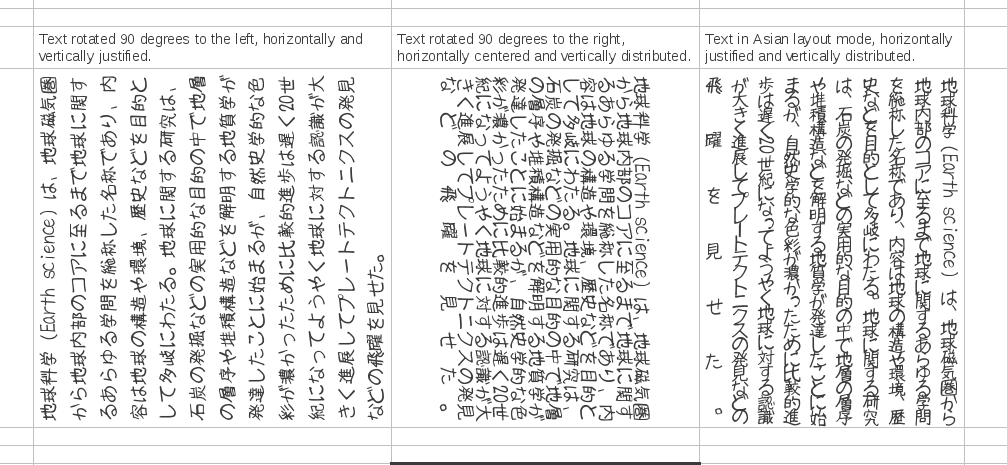 Text rotated 90 degrees to the left, horizontally and
vertically justified.
地球科学（Earth science）は、地球磁気圏
から地球内部のコアに至るまで地球に関す
るあらゆる学問を総称した名称であり、内
容は地球の構造や環境、歴史などを目的と
して多岐にわたる。地球に関する研究は、
石炭の発掘などの実用的な目的の中で地層
の層序や堆積構造などを解明する地質学が
発達したことに始まるが、自然史学的な色
彩が濃かったために比較的進歩は遅く20世
紀になってようやく地球に対する認識が大
きく進展してプレートテクトニクスの発見
などの飛躍を見せた。
Text rotated 90 degrees to the right,
horizontally centered and vertically distributed.
地球科学（Earth science）は、地球磁気圏
から地球内部のコアに至るまで地球に関す
るあらゆる学問を総称した名称であり、内
容は地球の構造や環境、歴史などを目的と
して多岐にわたる。地球に関する研究は、
石炭の発掘などの実用的な目的の中で地層
の層序や堆積構造などを解明する地質学が
発達したことに始まるが、自然史学的な色
彩が濃かったために比較的進歩は遅く20世
紀になってようやく地球に対する認識が大
きく進展してプレートテクトニクスの発見
などの飛躍を見せた。
Text in Asian layout mode, horizontally
justified and vertically distributed.
地球科学（Earth science）は、地球磁気圏から
地球内部のコアに至るまで地球に関するあらゆる学問
を総称した名称であり、内容は地球の構造や環境、歴
史などを目的として多岐にわたる。地球に関する研究
は、石炭の発掘などの実用的な目的の中で地層の層序
や堆積構造などを解明する地質学が発達したことに始
まるが、自然史学的な色彩が濃かったために比較的進
歩は遅く20世紀になってようやく地球に対する認識
が大きく進展してプレートテクトニクスの発見などの
飛躍を見せた。